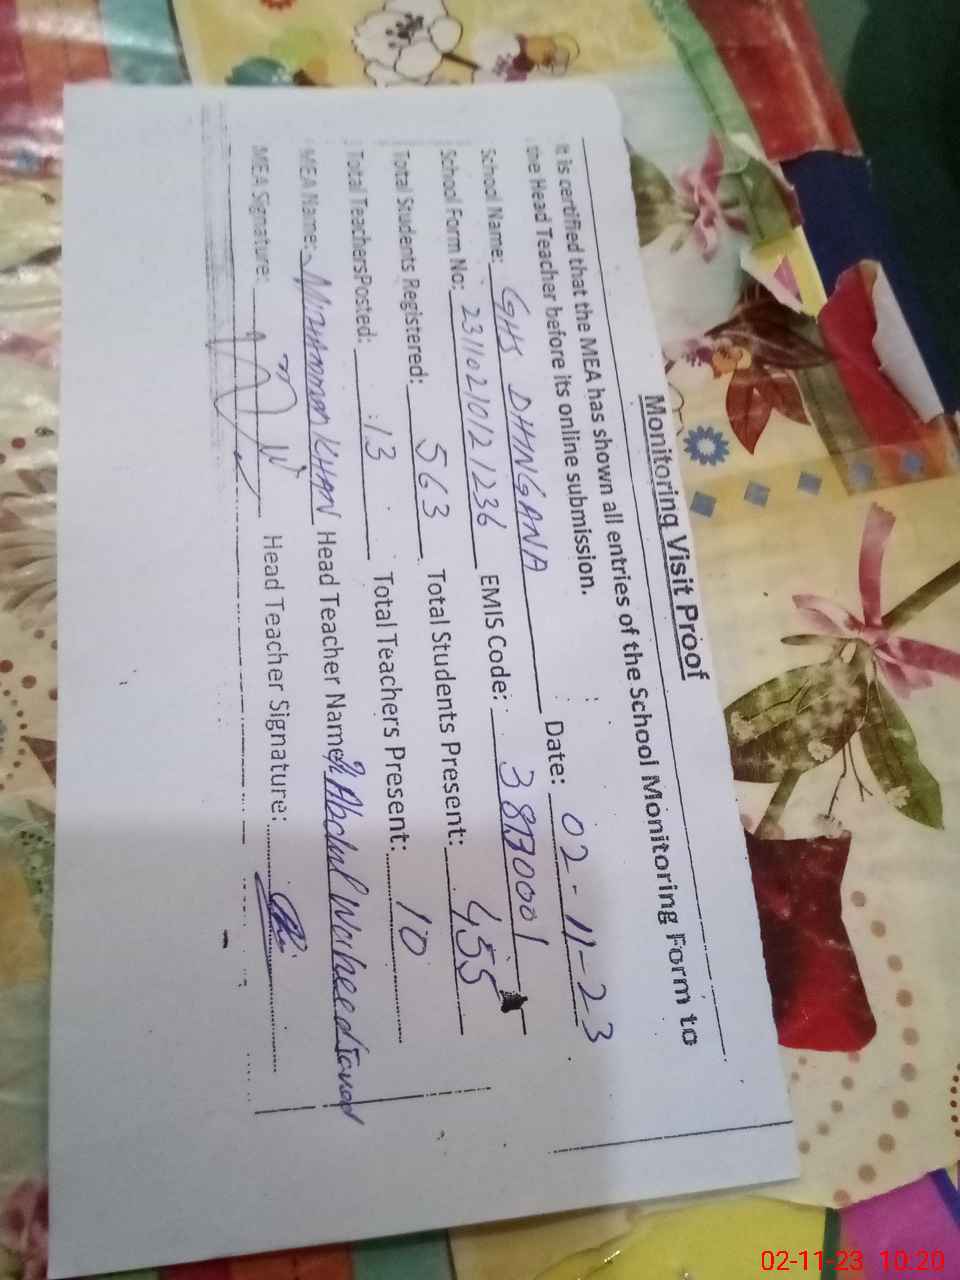 Monitoring Visit Proof
It is certified that the MEA has shown all entries of the School Monitoring Form to
the Head Teacher before its online submission.
School Name: GHS DHINGANA Date: 02-11-23
School Form No: 23110210121236 EMIS Code: 38130001
Total Students Registered: 563 Total Students Present: 455
Total TeachersPosted: 13 Total Teachers Present: 10
MEA Name: Muhammad KHAN Head Teacher Name: Abdul Waheed
MEA Signature: Head Teacher Signature:
02-11-23 10:20